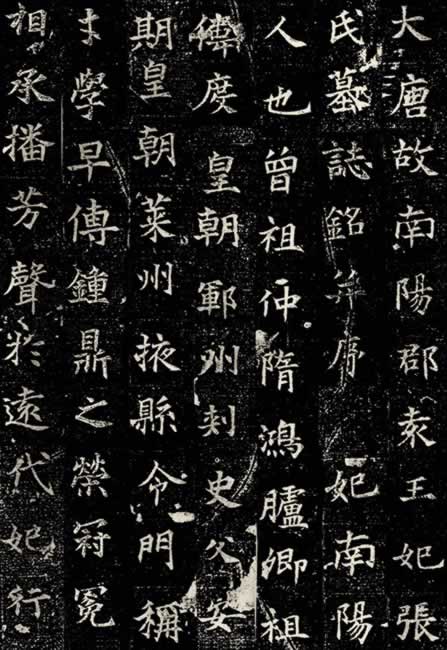 大唐故南陽郡袁王妃張
氏墓誌銘并序 妃南陽
人也曾祖仲隋鴻臚卿祖
度 皇朝鄆州刾史父安
期皇朝萊州掖縣令門稱
才學早傳鍾鼎之榮冠冕
相承播芳聲於遠代妃行